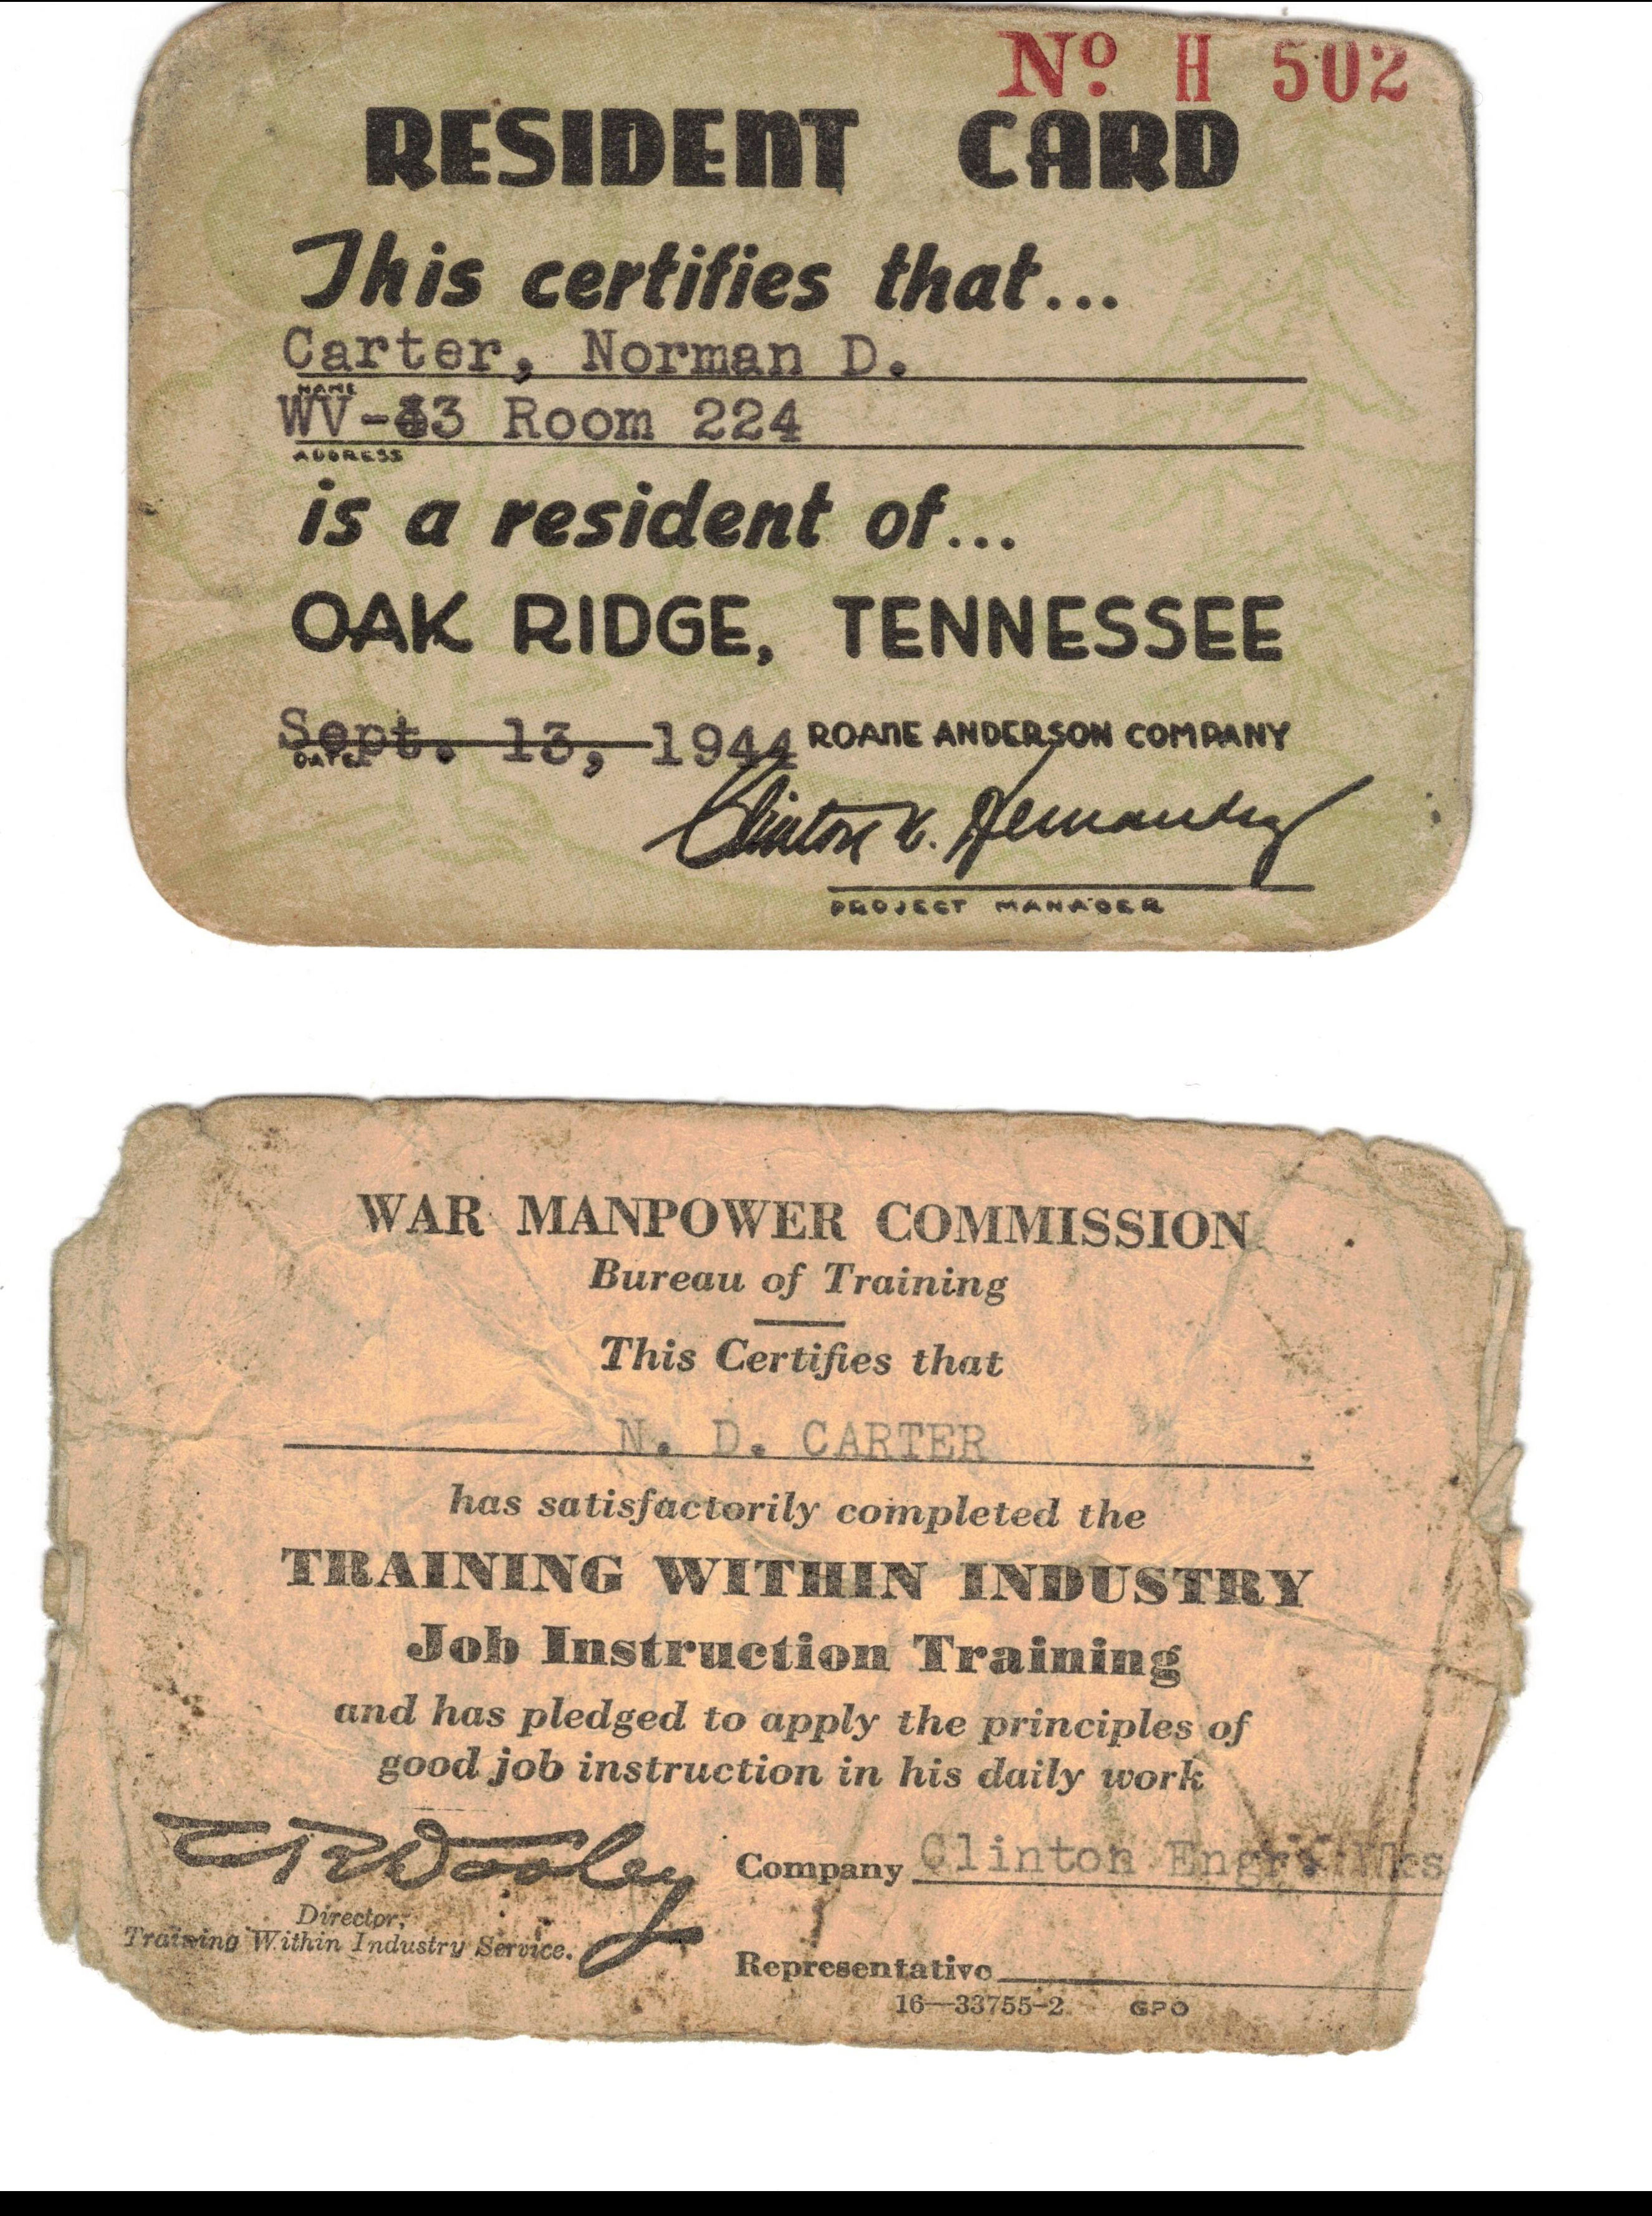 No. H 502
RESIDENT CARD
This certifies that...
Carter, Norman D.
NAME
Room 224
ADDRESS
is a resident of...
OAK RIDGE, TENNESSEE
Sept. 13, 1944 ROANE ANDERSON COMPANY
DATE
Clinton N. Hernandez
PROJECT MANAGER
WAR MANPOWER COMMISSION
Bureau of Training
This Certifies that
N. D. CARTER.
has satisfactorily completed the
TRAINING WITHIN INDUSTRY
Job Instruction Training
and has pledged to apply the principles of
good job instruction in his daily work
Company Clinton Engr.
Director,
Training Within Industry Service.
Representative
16—33755-2 GPO